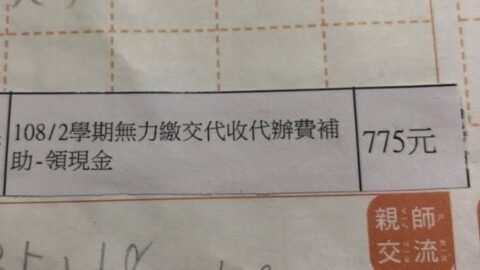 108/2學期無力繳交代收代辦費補
助-領現金
775元
親師
交流